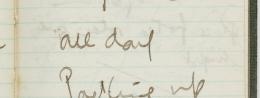 all day
Packing up